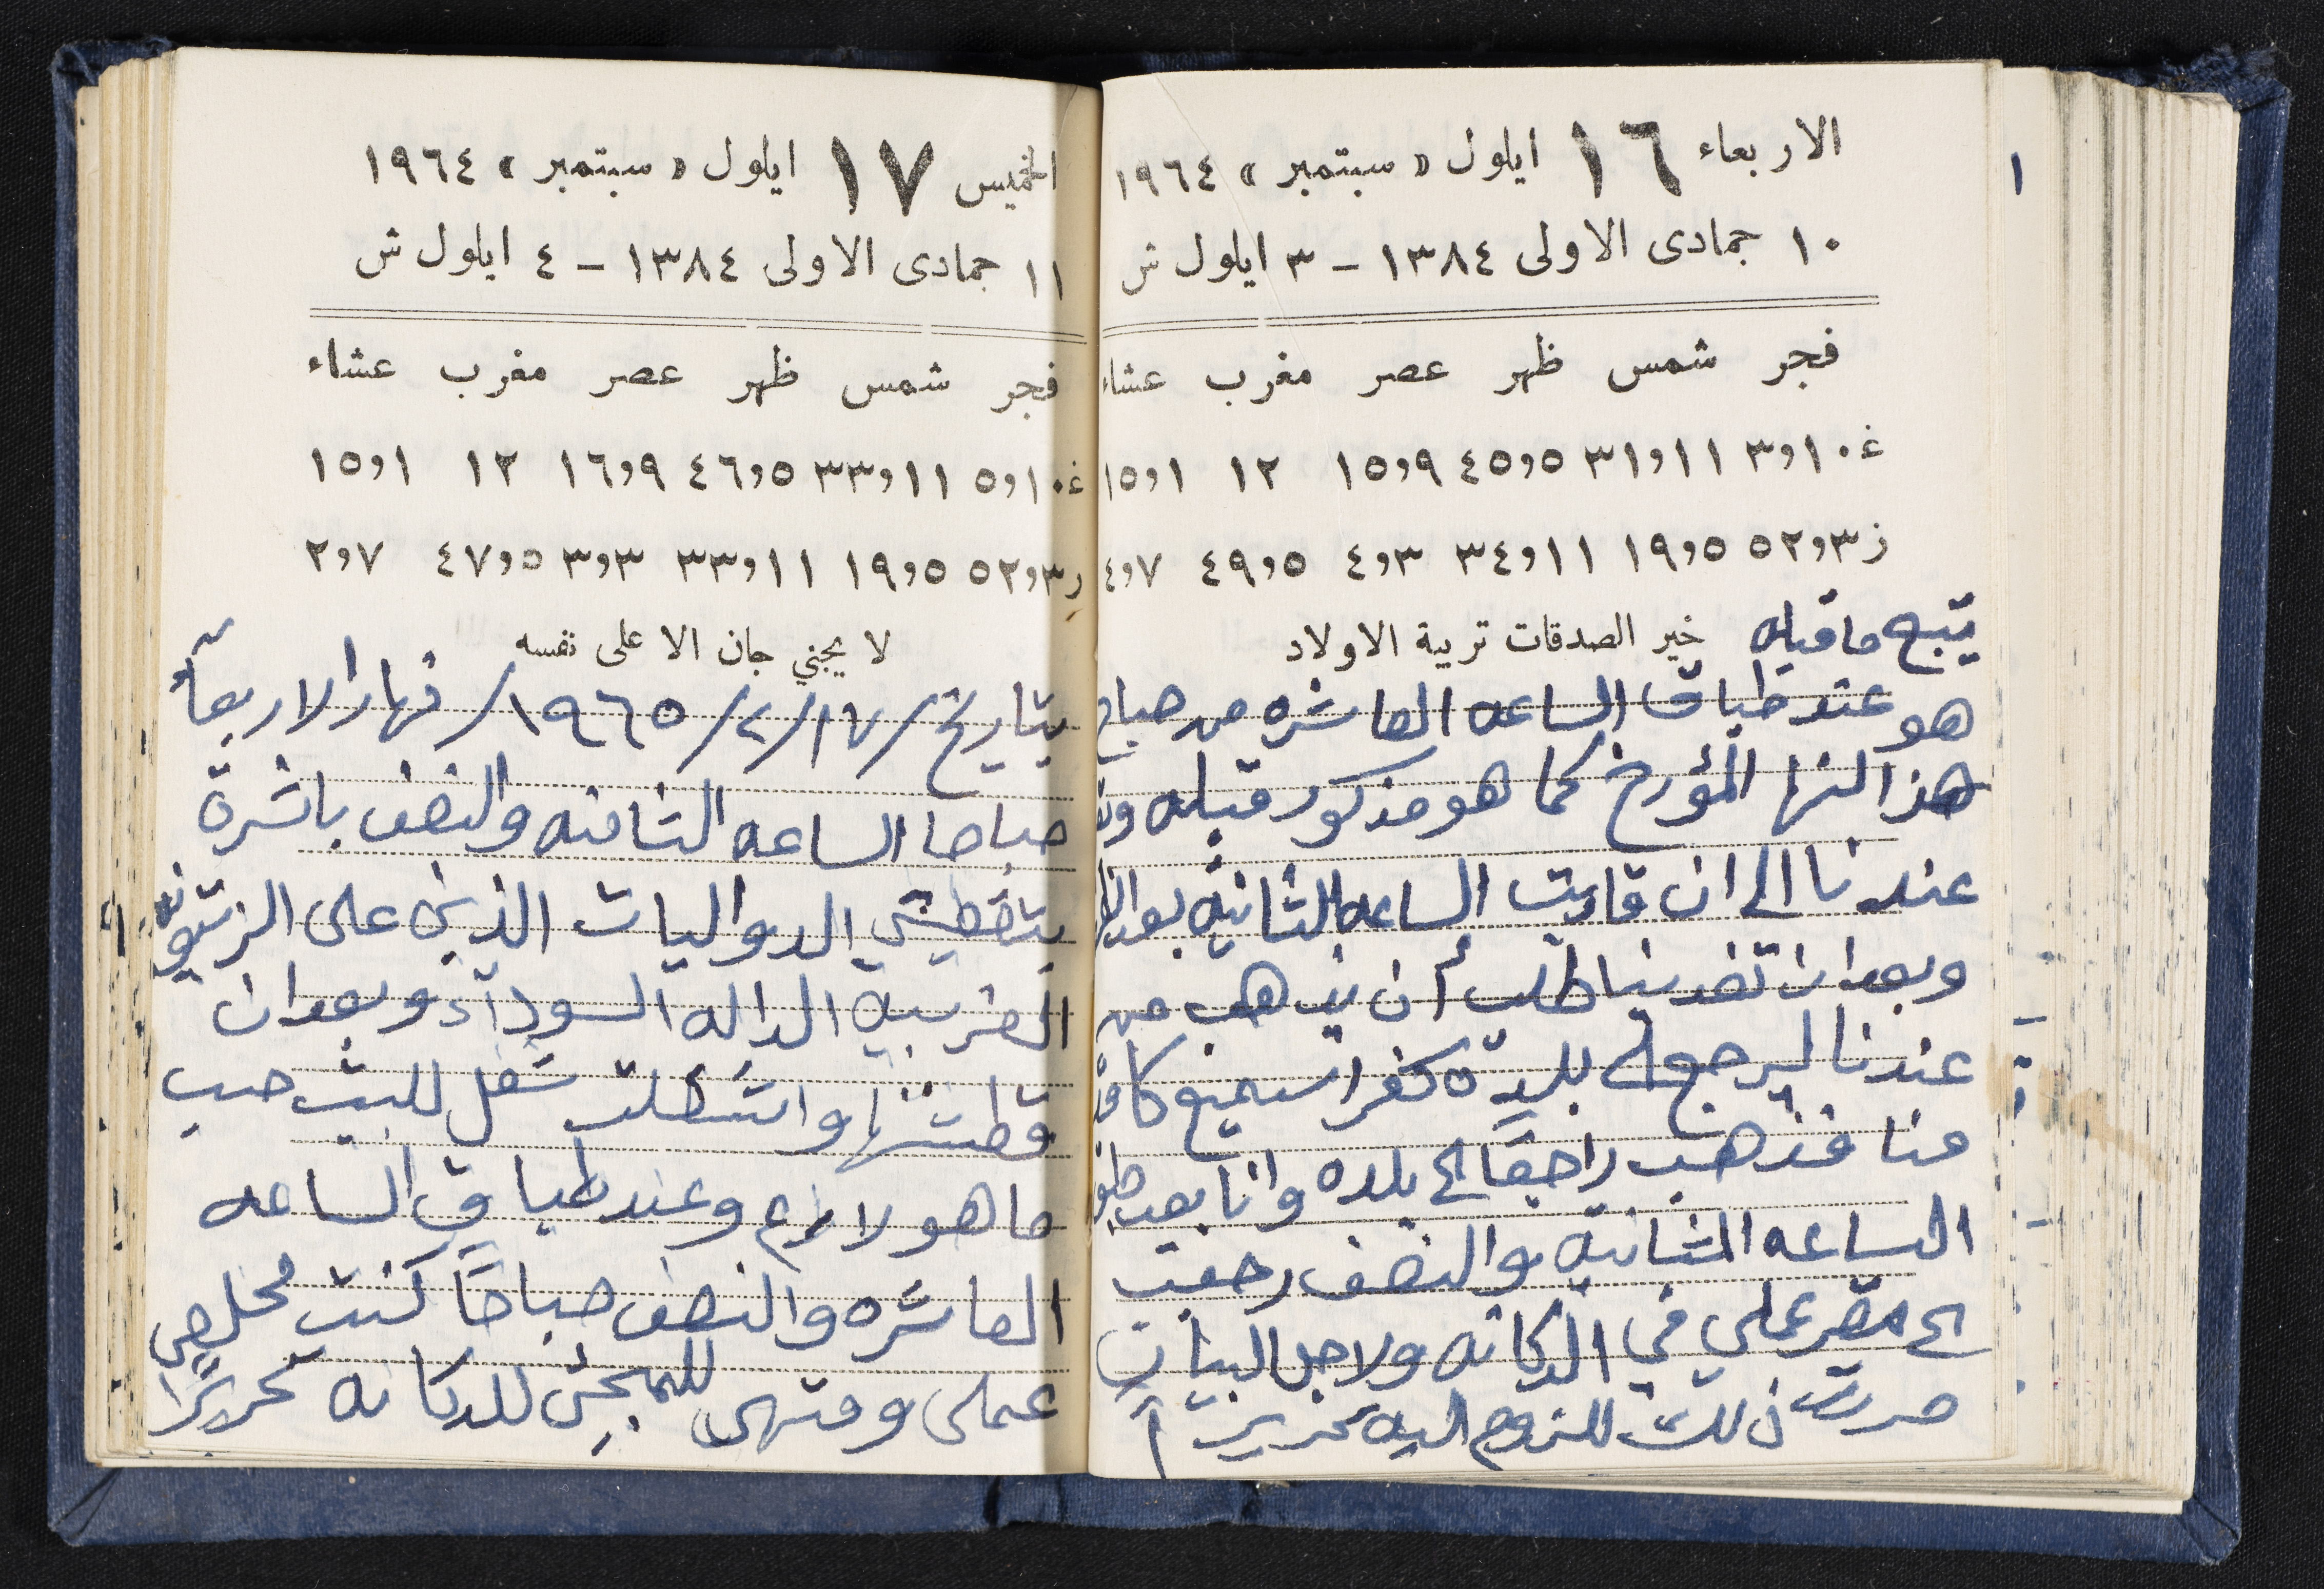 الاربعاء ١٦ ايلول « سبتمبر » ١٩٦٤
١٠ جمادى الاولى ١٣٨٤ – ٣ ايلول ش
فجر شمس ظهر عصر مغرب عشاء
غ ١٠و٣ ١١و٣١ ٥و٤٥ ٩و١٥ ١٢ ١و١٥
ز ٣و٥٢ ٥و١٩ ١١و٣٤ ٣و٤ ٥و٤٩ ٧و٤
خير الصدقات تربية الاولاد
يتبع ما قبله
هو عند طباق الساعه العاشره من صباح
هذا النها المؤرخ كما هو مذكور قبله
عندنا الى ان قاربت الساعه الثانيه بعد
وبعد ان تغدينا طلب أن يذهب من
عندنا ليرجع الى بلدة كفراسميع
منا فذهب راجعًا الى بلده وانا بعد
الساعه الثانيه والنصف رجعت
الى مقر عملي في الدكانه ولاجل البيان
حررت ذلك للزوم اليه تحريرآ
الخميس ١٧ ايلول « سبتمبر » ١٩٦٤
١١ جمادى الاولى ١٣٨٤ – ٤ ايلول ش
فجر شمس ظهر عصر مغرب عشاء
غ ١٠و٥ ١١و٣٣ ٥و٤٦ ٩و١٦ ١٢ ١و١٥
ز ٣و٥٢ ٥و١٩ ١١و٣٣ ٣و٣ ٥و٤٧ ٧و٢
لا يجني جان الا على نفسه
بتاريخ /١٧/٢/١٩٦٥/ نهار الاربعآ
صباحا الساعه الثامنه والنصف باشرة
الدواليات الذين على الزيتونه
الغربيه الداله السودآء وبعد ان
واشتغلت شغل للبيت حسب
ما هو لازم وعند طباق الساعه
العاشره والنصف صباحًا كنت مخلص
عملى ومنتهى للمجئ للدكانه تحريرًا